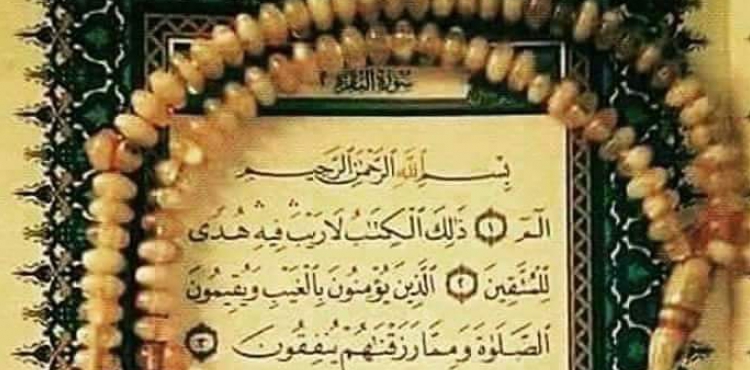 سورة البقرة ٢
بِسْمِ اللَّهِ الرَّحْمَٰنِ الرَّحِيمِ
الٓمٓ ١ ذَٰلِكَ الْكِتَابُ لَا رَيْبَ ۛ فِيهِ ۛ هُدًى
لِّلْمُتَّقِينَ ٢ الَّذِينَ يُؤْمِنُونَ بِالْغَيْبِ وَيُقِيمُونَ
الصَّلَوٰةَ وَمِمَّا رَزَقْنَاهُمْ يُنفِقُونَ ٣